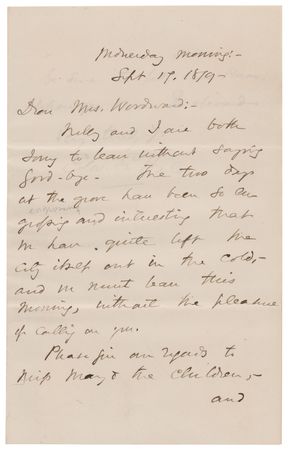 Wednesday morning:-
Sept 17. 1879-
Dear Mrs. Woodward:-
Nelly and I are both
sorry to leave without saying
Good-bye- The two days
at the grove have been so en-
grossing and interesting that
engrossing
we have quite left the
city itself out in the cold,-
and we must leave this
morning, without the pleasure
of calling on you.
Please give our regards to
Miss May & the children,-
and